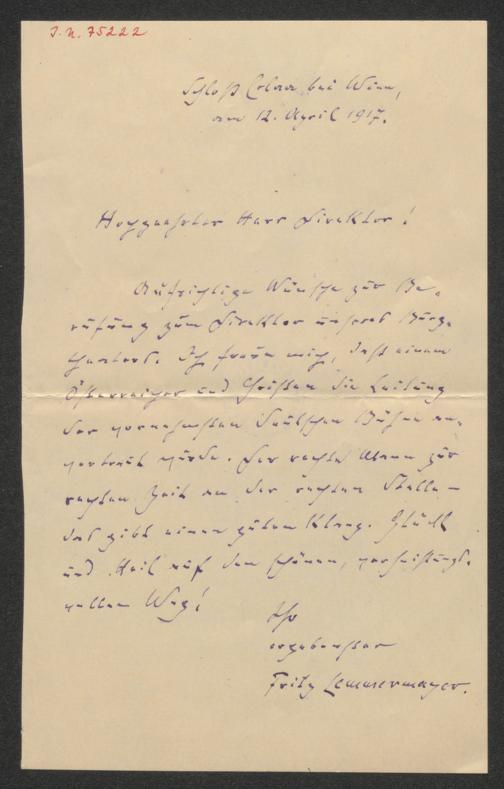 J.N. 75222
Schloß Erlaa bei Wien,
am 12. April 1917.
Hochgeehrter Herr Direktor!
Aufrichtige Wünsche zur Be-
rufung zum Direktor unseres Burg-
theaters. Ich freue mich, daß einem
Österreicher und Christen die Leitung
der vornehmsten deutschen Bühne an-
vertraut wurde. Der rechte Mann zur
rechten Zeit an der rechten Stelle –
das gibt einen guten Klang. Glück
und Heil auf dem schönen, verheißungs-
vollen Weg!
Ihr
ergebenster
Fritz Lemmermayer.